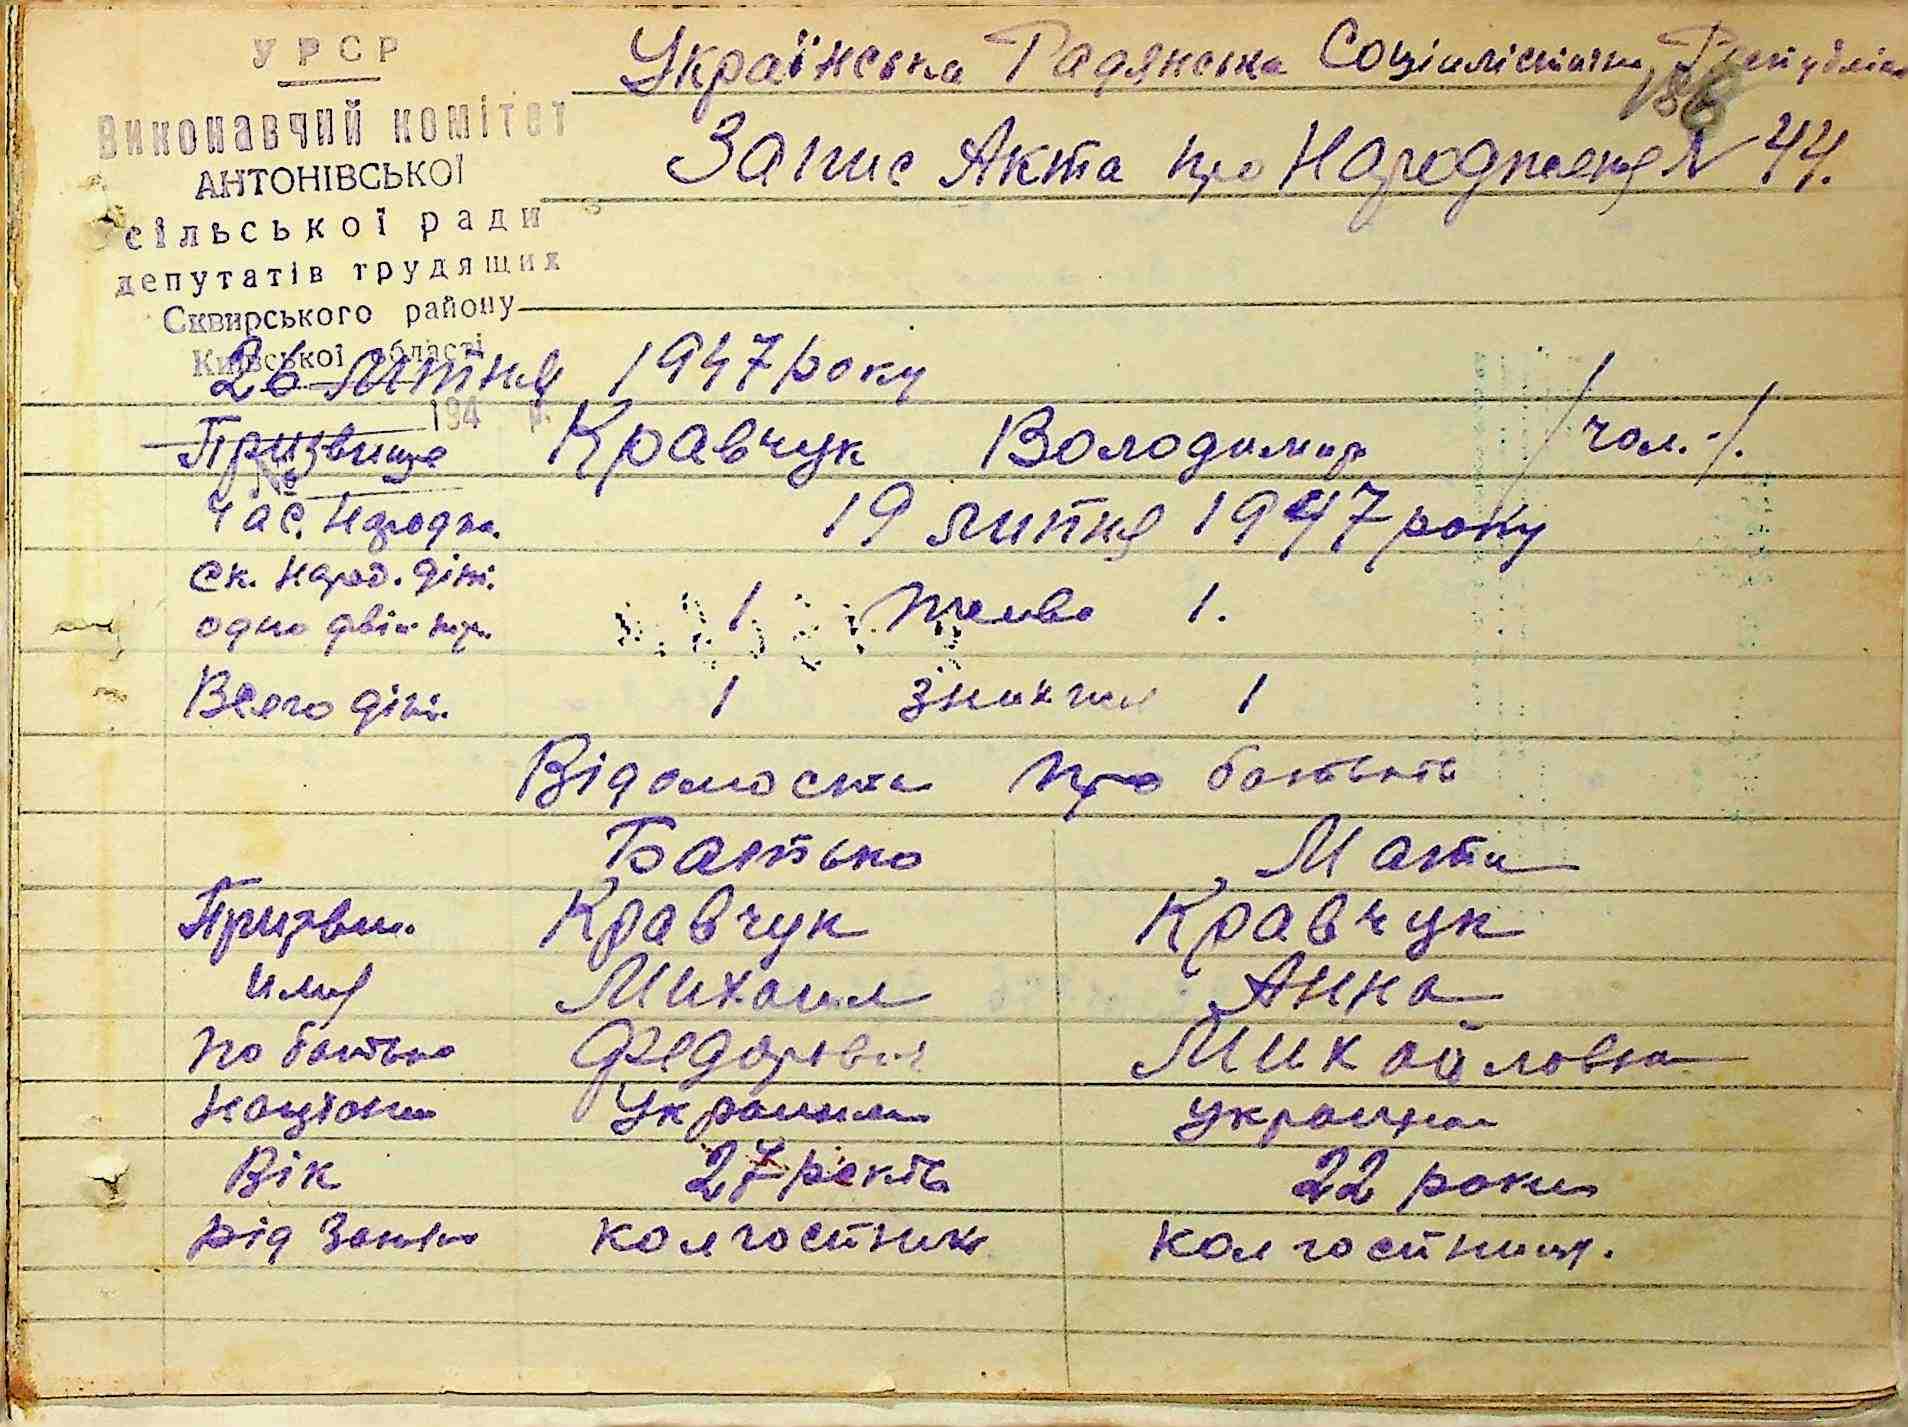 УРСР
Виконавчий комітет
АНТОНІВСЬКОЇ
сільської ради
депутатів трудящих
Сквирського району
Київської області
194 р.
№
Українська Радянська Соціалістична Республіка
186
Запис Акта про Народження № 44.
26 липня 1947 року
Призвище Кравчук Володимир /чол.-/.
Час. Народж. 19 липня 1947 року
Ск. народ. діт. 1 живо 1.
одно двій
Всего діт. 1 з них жив 1
Відомости про батьків
Батько Мати
Призвищ. Кравчук Кравчук
имя Михаил Анна
по батько Федорович Михайловна
націон Украинец украинка
Вік 27 років 22 роки
рід Занят колгоспник колгоспниця.